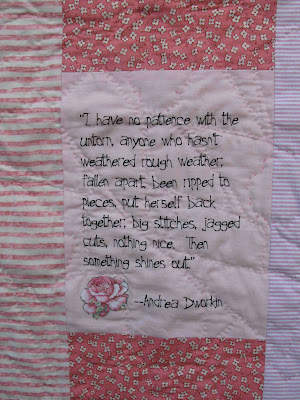 "I have no patience with the
untorn, anyone who hasn't
weathered rough weather,
fallen apart, been ripped to
pieces, put herself back
together, big stitches, jagged
cuts, nothing nice. Then
something shines out."
--Andrea Dworkin